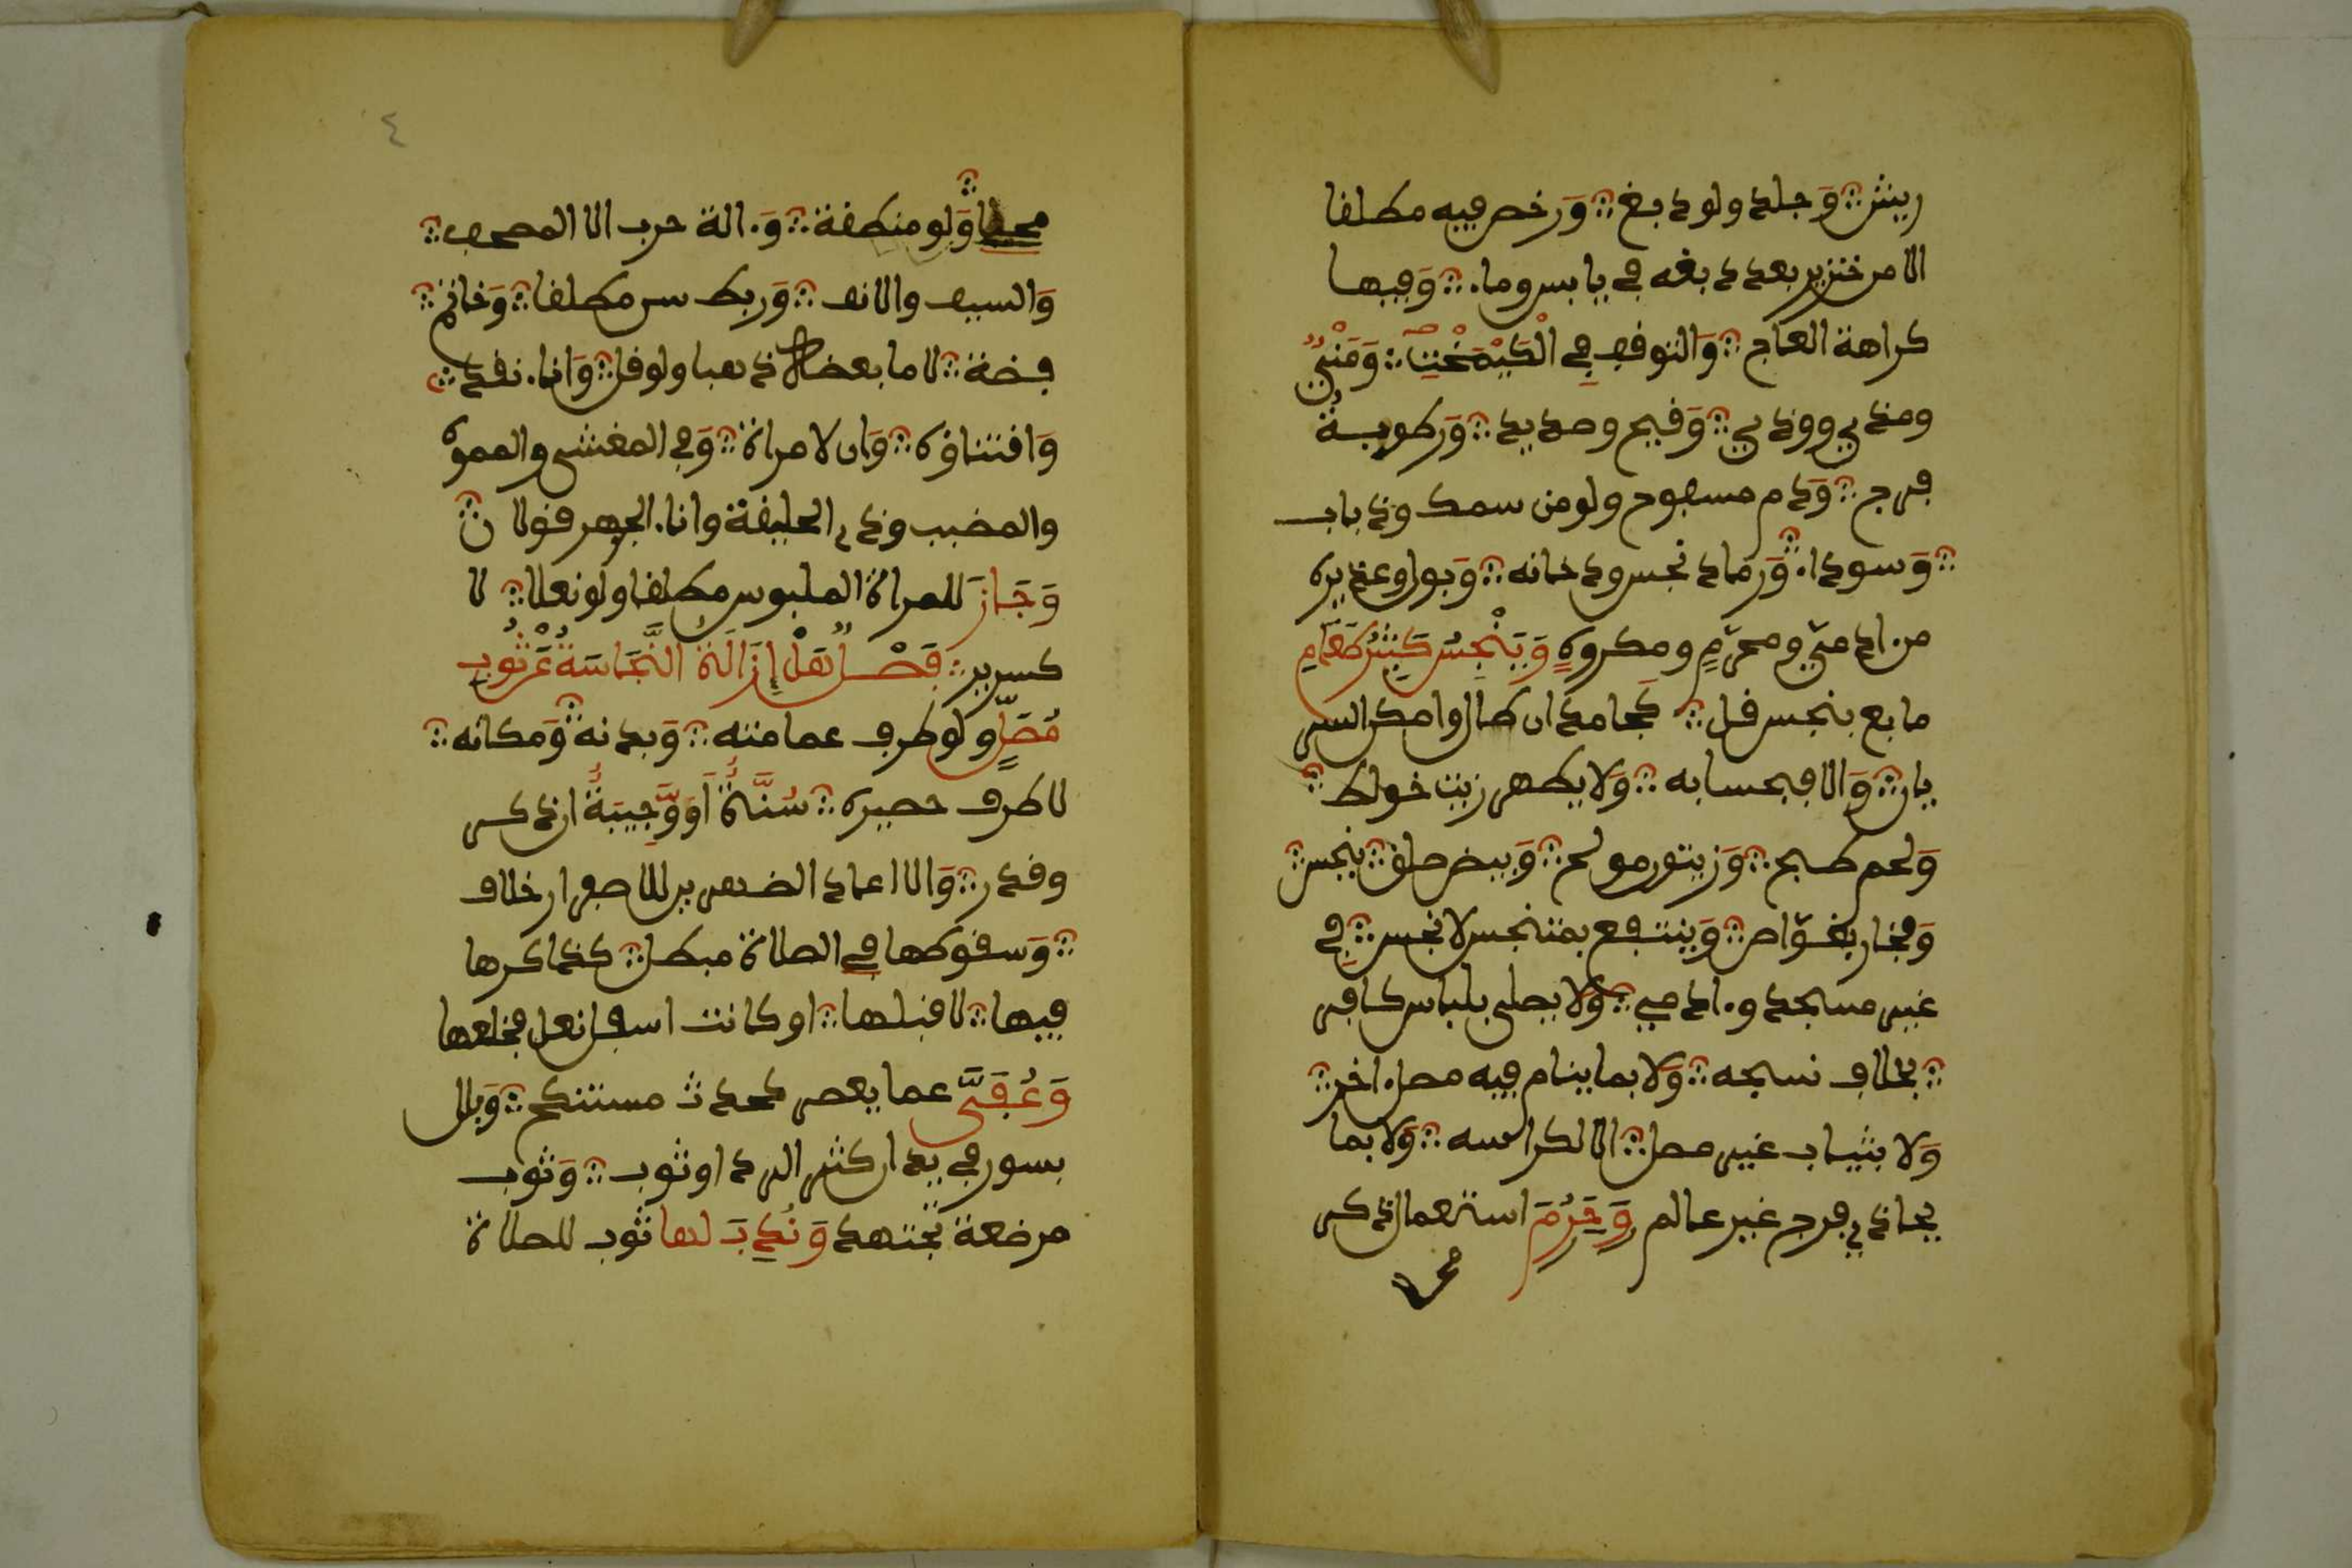 ريش وجلد ولو دبغ ورخص فيه مطلقا
الا من خنزير بعد دبغه في يابس وماء وفيها
كراهة العاج والتوقف في الكيمخت ومني
ومذي وودي وقيح وصديد ورطوبة
فرج ودم مسفوح ولو من سمك وذباب
وسوداء ورماد نجس ودخانه وبول وعذيره
من ادمي ومحرم ومكروه وينجس كثير طعام
مايع بنجس قل كجامد ان طال وامكن السر
يان والا فبحسابه ولا يطهر زيت خولط
ولحم طبخ وزيتون ملح وبيض صلق بنجس
وفخار بغواص وينتفع بمتنجس لا نجس في
غير مسجد وءادمي ولا يصلى بلباس كافر
بخلاف نسجه ولا بما ينام فيه مصل ءاخر
ولا بثياب غير مصل الا لكراسه ولا بما
يحاذي فرج غير عالم وحرم استعمال ذكر
محلا
٤
محلا ولو منطقة وءالة حرب الا المصحف
والسيف والانف وربط سن مطلقا وخاتم
فضة لا ما بعضه ذهبا ولو قل واناء نقد
واقتناؤه وان لامراة وفي المغشى والمموه
والمضبب وذي الحليفة واناء الجوهر قولان
وجاز للمراة الملبوس مطلقا ولو نعلا لا
كسرير فصل هل ازالة النجاسة عن ثوب
مصل ولو طرف عمامته وبدنه ومكانه
لا طرف حصيره سنة او واجبة ان ذكر
وقدر والا اعاد الظهرين للاصفرار خلاف
وسقوطها في الصلاة مبطل كذاكرها
فيها لا قبلها او كانت اسفل نعل فخلعها
وعفي عما يعسر كحدث مستنكح وبلل
بسور في يد ان كثر الرد او ثوب وثوب
مرضعة تجتهد وندب لها ثوب للصلاة